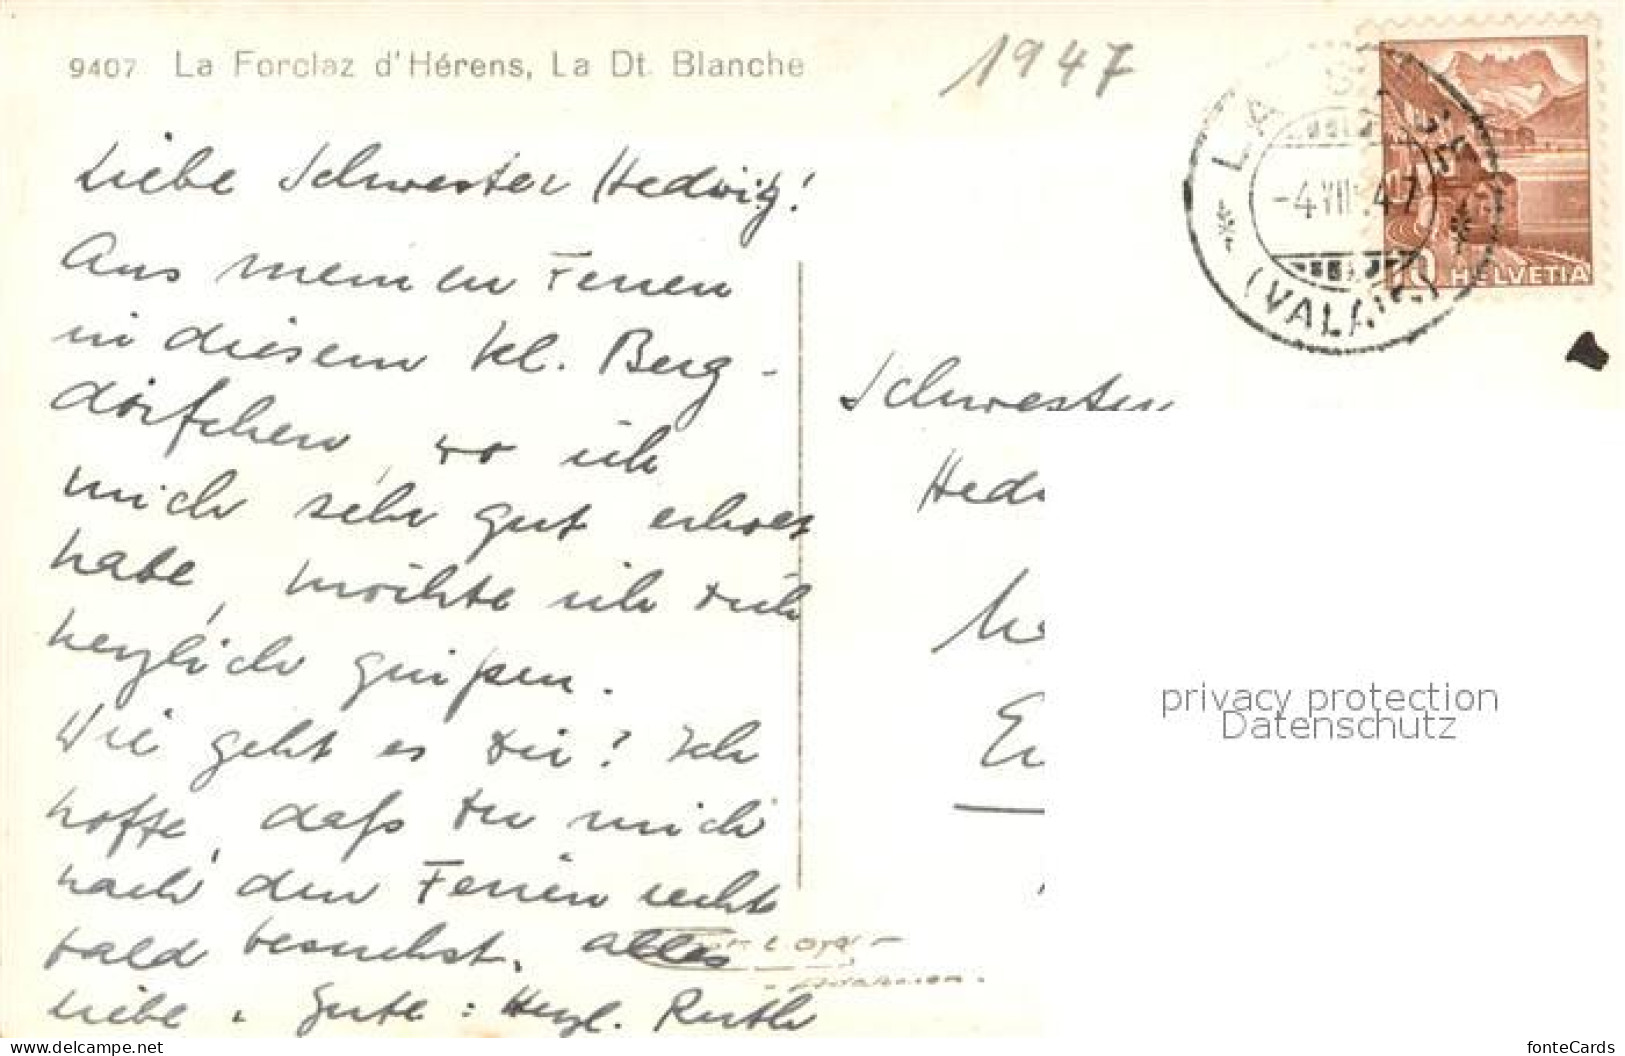 9407 La Forclaz d'Hérens, La Dt. Blanche
1947
-4.VIII.47
(VALAIS)
10 HELVETIA
Liebe Schwester Hedwig!
Aus meinen Ferien
in diesem kl. Berg-
dörfchen, wo ich
mich sehr gut erholt
habe, möchte ich Dich
herzlich grüßen.
Wie geht es Dir? Ich
hoffe, daß Du mich
nach den Ferien recht
bald besuchst. Alles
Liebe . Gute : Herzl. Ruth
Schwester
Hed
privacy protection
Datenschutz
www.delcampe.net
fonteCards